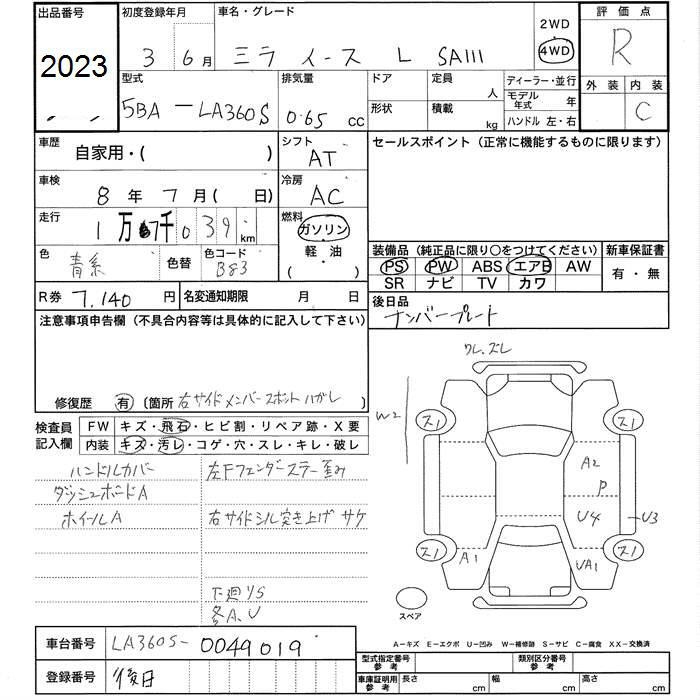 出品番号 初度登録年月 車名・グレード 2WD 評価点
2023 3年 6月 ミラ イース L SAIII 4WD R
型式 排気量 ドア 定員 ディーラー・並行 外装 内装
5BA-LA360S 0.65 cc 人 モデル年式 年 C
形状 積載 kg ハンドル 左・右
車歴 シフト セールスポイント（正常に機能するものに限ります）
自家用・( ) AT
車検 冷房
8年 7月( 日) AC
走行 燃料
1万 千039 km ガソリン・軽油
( )
色 色替 色コード
青系 B83
装備品（純正品に限り○をつけてください） 新車保証書
PS PW ABS エアB AW 有・無
SR ナビ TV カワ
R券 7,140円 名変通知期限 月 日 後日品
ナンバープレート
注意事項申告欄（不具合内容等は具体的に記入して下さい）
修復歴 有 〔箇所 右サイドメンバースポットハガレ
ワレ、ズレ
W2
検査員記入欄 FW キズ・飛石・ヒビ割・リペア跡・X要
内装 キズ・汚レ・コゲ・穴・スレ・キレ・破レ
ハンドルカバー 左Fフェンダーステー歪み
ダッシュボードA
ホイールA 右サイドシル突き上げ サケ
下廻りS
各A、U
ス1 ス1
A2
P
U4 U3
ス1 ス1
A1 UA1
スペア
A－キズ E－エクボ U－凹み W－補修跡 S－サビ C－腐食 XX－交換済
車台番号 LA360S-0049019
登録番号 後日
型式指定番号 参考 類別区分番号 参考
車庫証明用 参考 長さ cm 幅 cm 高さ cm